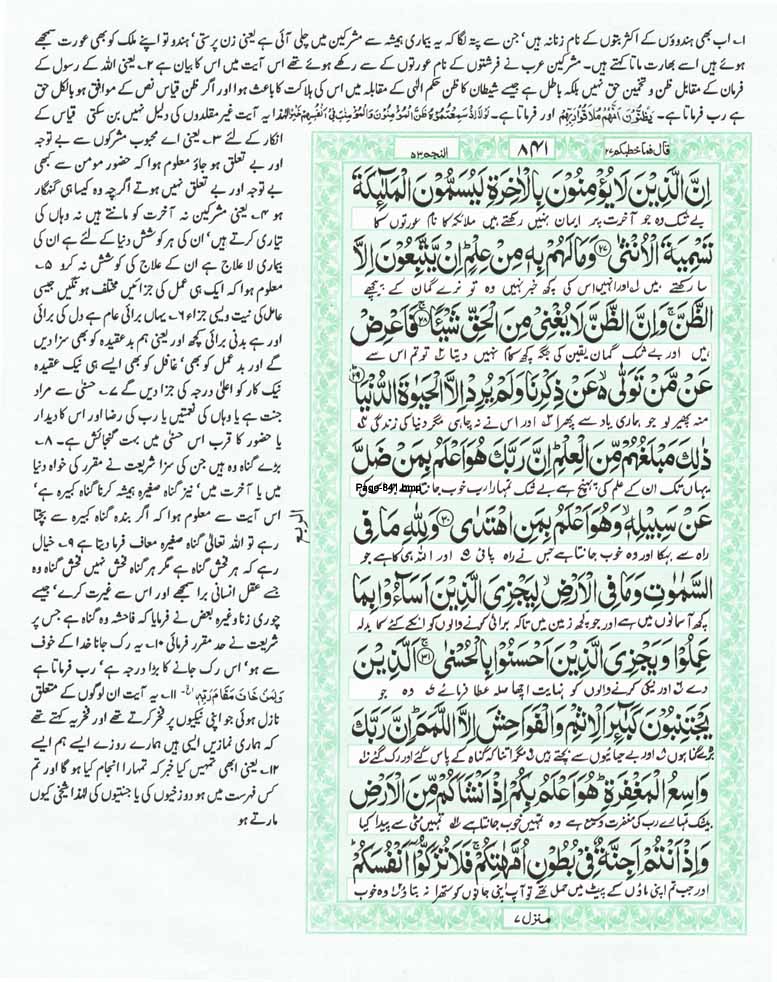 ۱۔ اب بھی ہندوؤں کے اکثر بتوں کے نام زنانہ ہیں‘ جن سے پتہ لگا کہ یہ بیماری ہمیشہ سے مشرکین میں چلی آئی ہے یعنی زن پرستی‘ ہندو تو اپنے ملک کو بھی عورت سمجھے
ہوئے ہیں اسے بھارت ماتا کہتے ہیں۔ مشرکین عرب نے فرشتوں کے نام عورتوں کے سے رکھے ہوئے تھے اس آیت میں اس کا بیان ہے ۲۔ یعنی اللہ کے رسول کے
فرمان کے مقابل ظن و تخمین حق نہیں بلکہ باطل ہے جیسے شیطان کا ظن حکم الٰہی کے مقابلہ میں اس کی ہلاکت کا باعث ہوا اور اگر ظن قیاس نص کے موافق ہو بالکل حق
ہے رب فرماتا ہے۔ يَظُنُّوْنَ اَنَّهُمْ مُّلٰقُوْا رَبِّهِمْ اور فرماتا ہے۔ لَوْلَا اِذْ سَمِعْتُمُوْهُ ظَنَّ الْمُؤْمِنُوْنَ وَالْمُؤْمِنٰتُ بِاَنْفُسِهِمْ خَيْرًا لہٰذا یہ آیت غیر مقلدوں کی دلیل نہیں بن سکتی قیاس کے
انکار کے لئے ۳۔ یعنی اے محبوب مشرکوں سے بے توجہ
اور بے تعلق ہو جاؤ معلوم ہوا کہ حضور مومن سے بھی
بے توجہ اور بے تعلق نہیں ہوتے اگرچہ وہ کیسا ہی گنہگار
ہو ۴۔ یعنی مشرکین نہ آخرت کو مانتے ہیں نہ وہاں کی
تیاری کرتے ہیں‘ ان کی ہر کوشش دنیا کے لئے ہے ان کی
بیماری لا علاج ہے ان کے علاج کی کوشش نہ کرو ۵۔
معلوم ہوا کہ ایک ہی عمل کی جزائیں مختلف ہوتیں جیسی
عامل کی نیت ویسی جزاء ۶۔ یہاں برائی عام ہے دل کی برائی
اور ہے بدنی برائی کچھ اور یعنی ہم بد عقیدہ کو بھی سزا دیں
گے اور بد عمل کو بھی‘ غافل کو بھی ایسے ہی نیک عقیدہ
نیک کار کو اعلیٰ درجہ کی جزا دیں گے ۷۔ حسنٰی سے مراد
جنت ہے یا وہاں کی نعمتیں یا رب کی رضا اور اس کا دیدار
یا حضور کا قرب اس حسنٰی میں بہت گنجائش ہے۔ ۸۔
بڑے گناہ وہ ہیں جن کی سزا شریعت نے مقرر کی خواہ دنیا
میں یا آخرت میں‘ نیز گناہ صغیرہ ہمیشہ کرنا گناہ کبیرہ ہے‘
اس آیت سے معلوم ہوا کہ اگر بندہ گناہ کبیرہ سے بچتا
رہے تو اللہ تعالٰی گناہ صغیرہ معاف فرما دیتا ہے ۹۔ خیال
رہے کہ ہر فحش گناہ ہے مگر ہر گناہ فحش نہیں‘ فحش گناہ وہ
جسے عقل انسانی برا سمجھے اور اس سے غیرت کرے‘ جیسے
چوری زنا وغیرہ بعض نے فرمایا کہ فاحشہ وہ گناہ ہے جس پر
شریعت نے حد مقرر فرمائی ۱۰۔ یہ رک جانا خدا کے خوف
سے ہو‘ اس رک جانے کا بڑا درجہ ہے‘ رب فرماتا ہے
وَلِمَنْ خَافَ مَقَامَ رَبِّهٖ ۱۱۔ یہ آیت ان لوگوں کے متعلق
نازل ہوئی جو اپنی نیکیوں پر فخر کرتے تھے اور فخریہ کہتے تھے
کہ ہماری نمازیں ایسی ہیں ہمارے روزے ایسے ہم ایسے
۱۲۔ یعنی ابھی تمہیں کیا خبر کہ تمہارا انجام کیا ہو گا اور تم
کس فہرست میں ہو دوزخیوں کی یا جنتیوں کی لہٰذا شیخی کیوں
مارتے ہو
قال فماخطبكم ۲۷ ۸۴۱ النجم ۵۳
اِنَّ الَّذِيْنَ لَا يُؤْمِنُوْنَ بِالْاٰخِرَةِ لَيُسَمُّوْنَ الْمَلٰٓئِكَةَ
بے شک وہ جو آخرت پر ایمان نہیں رکھتے ہیں ملائکہ کا نام عورتوں کا
تَسْمِيَةَ الْاُنْثٰى ۲۷ وَمَا لَهُمْ بِهٖ مِنْ عِلْمٍ اِنْ يَّتَّبِعُوْنَ اِلَّا
سا رکھتے ہیں ۱ اور انہیں اس کی کچھ خبر نہیں وہ تو نرے گمان کے پیچھے
الظَّنَّ وَاِنَّ الظَّنَّ لَا يُغْنِيْ مِنَ الْحَقِّ شَيْئًا ۲۸ فَاَعْرِضْ
ہیں اور بے شک گمان یقین کی جگہ کچھ کام نہیں دیتا ۲ تو تم اس سے
عَنْ مَّنْ تَوَلّٰى عَنْ ذِكْرِنَا وَلَمْ يُرِدْ اِلَّا الْحَيٰوةَ الدُّنْيَا ۲۹
منہ پھیر لو جو ہماری یاد سے پھرا ۳ اور اس نے نہ چاہی مگر دنیا کی زندگی ۴
ذٰلِكَ مَبْلَغُهُمْ مِّنَ الْعِلْمِ اِنَّ رَبَّكَ هُوَ اَعْلَمُ بِمَنْ ضَلَّ
یہاں تک ان کے علم کی پہنچ ہے بے شک تمہارا رب خوب جانتا
Page-841.bmp
عَنْ سَبِيْلِهٖ وَهُوَ اَعْلَمُ بِمَنِ اهْتَدٰى ۳۰ وَلِلّٰهِ مَا فِي
راہ سے بہکا اور وہ خوب جانتا ہے جس نے راہ پائی ۵ اور اللہ ہی کا ہے جو
السَّمٰوٰتِ وَمَا فِي الْاَرْضِ لِيَجْزِيَ الَّذِيْنَ اَسَآءُوْا بِمَا
کچھ آسمانوں میں ہے اور جو کچھ زمین میں تاکہ برائی کرنے والوں کو انکے کئے کا بدلہ
عَمِلُوْا وَيَجْزِيَ الَّذِيْنَ اَحْسَنُوْا بِالْحُسْنٰى ۳۱ اَلَّذِيْنَ
دے ۶ اور نیکی کرنے والوں کو نہایت اچھا صلہ عطا فرمائے ۷ وہ جو
يَجْتَنِبُوْنَ كَبٰٓئِرَ الْاِثْمِ وَالْفَوَاحِشَ اِلَّا اللَّمَمَ اِنَّ رَبَّكَ
بڑے گناہوں ۸ اور بے حیائیوں سے بچتے ہیں ۹ مگر اتنا کہ گناہ کے پاس گئے اور رک گئے ۱۰
وَاسِعُ الْمَغْفِرَةِ هُوَ اَعْلَمُ بِكُمْ اِذْ اَنْشَاَكُمْ مِّنَ الْاَرْضِ
بیشک تمہارے رب کی مغفرت وسیع ہے وہ تمہیں خوب جانتا ہے ۱۱ تمہیں مٹی سے پیدا کیا
وَاِذْ اَنْتُمْ اَجِنَّةٌ فِيْ بُطُوْنِ اُمَّهٰتِكُمْ فَلَا تُزَكُّوْٓا اَنْفُسَكُمْ
اور جب تم اپنی ماؤں کے پیٹ میں حمل تھے تو آپ اپنی جانوں کو ستھرا نہ بتاؤ ۱۲ وہ خوب
منزل ۷
الربع